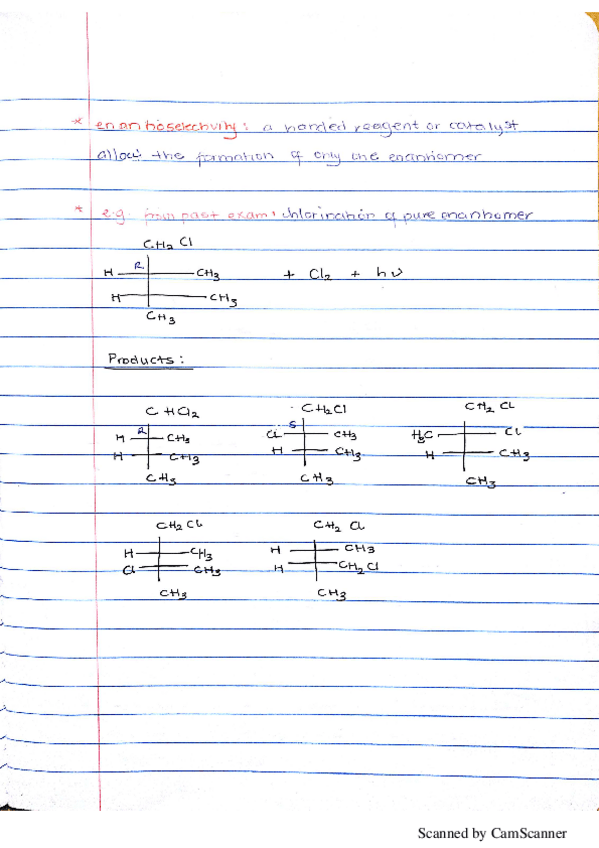 * enantioselectivity: a handed reagent or catalyst
allow the formation of only one enantiomer
* e.g. from past exam: chlorination of pure enantiomer
CH2 Cl
R
H CH3 + Cl2 + hν
H CH3
CH3
Products:
C HCl2 CH2Cl CH2 Cl
R S
H CH3 Cl CH3 H3C Cl
H CH3 H CH3 H CH3
CH3 CH3 CH3
CH2 Cl CH2 Cl
H CH3 H CH3
Cl CH3 H CH2 Cl
CH3 CH3
Scanned by CamScanner